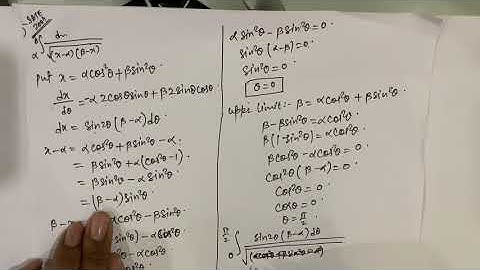 ∫ dx / √((x-α)(β-x))
put x = αcos²θ + βsin²θ
dx/dθ = -α2cosθsinθ + β2sinθcosθ
dx = sin2θ(β-α)dθ
x-α = αcos²θ + βsin²θ - α
= βsin²θ + α(cos²θ-1)
= βsin²θ - αsin²θ
= (β-α)sin²θ
αcos²θ - βsin²θ
- αcos²θ
- αcos²θ
αsin²θ - βsin²θ = 0
sin²θ(α-β) = 0
sin²θ = 0
θ = 0
upper limit:- β = αcos²θ + βsin²θ
β - βsin²θ = αcos²θ
β(1-sin²θ) = αcos²θ
βcos²θ - αcos²θ = 0
cos²θ(β-α) = 0
cos²θ = 0
cosθ = 0
θ = π/2
π/2 ∫ 0 sin2θ(β-α)dθ